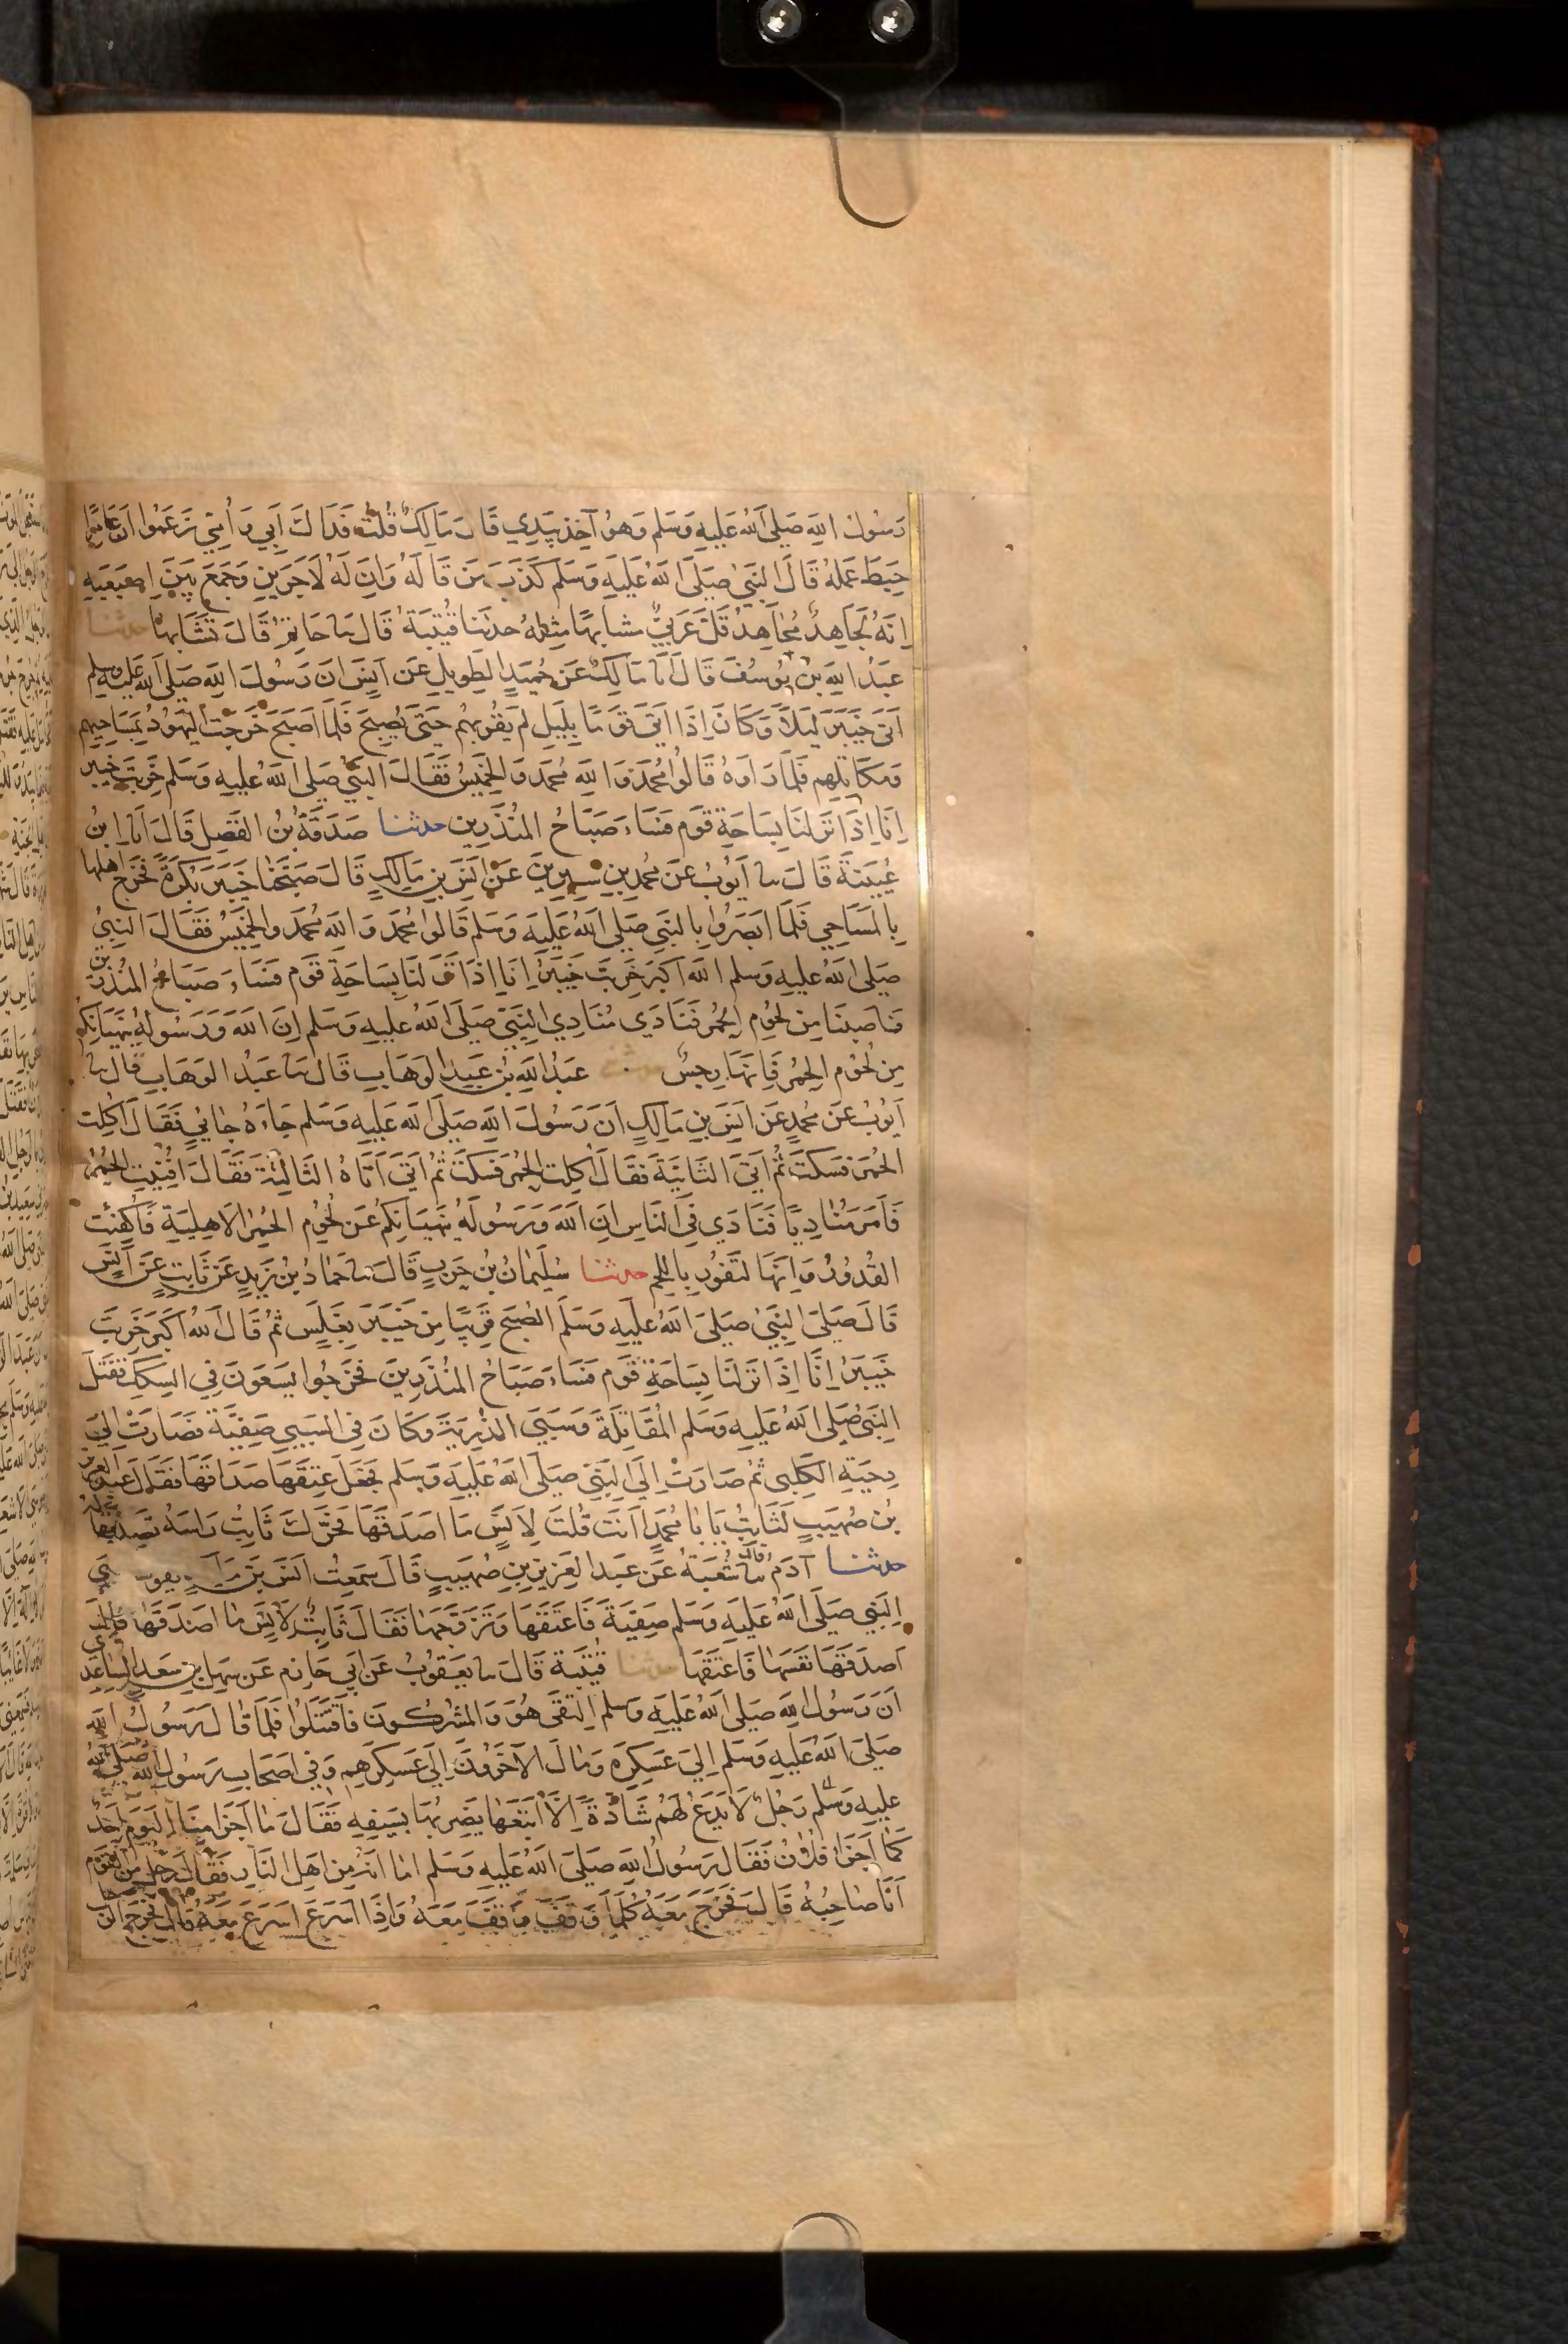 رَسُولُ اللهِ صَلَى اللهُ عَلَيهِ وَسَلم وَهوُ آخِذ بِيَدِي قَالَ مَالَكَ قُلتُ فَدَاكَ اَبِي وَاُمِي زَعَمُوا اَنَ عَامِرًا
حَبِطَ عَمَلُهُ قَالَ النَبَيُ صَلَى اللهُ عَلَيهِ وَسَلم كَذَبَ مَن قَالَهُ وَاِنَ لَهُ لَاجرَينِ وَجَمَعَ بَينَ اِصبَعَيهِ
اِنَهُ لَجَاهِدٌ مُجَاهِدٌ قَلَ عَرَبيٌ مشابهًا مِثلهُ حدثنا قُتَيبَةُ قَالَ نا حَاتِم قَالَ نَشَابِهَا حدثنا
عَبدُ اللهِ بنُ يُوسُفَ قَالَ اَنَا مَالِكٌ عَن حُمَيدٍ الطَوِيلِ عَن اَنَسٍ ان رَسُولَ اللهِ صَلَى اللهُ عَلَيهِ وسلم
اَتَى خَيبَرَ لَيلاً وَكَانَ اِذَا اَتَى قَومًا بِلَيلِ لَم يَقرَبهُم حَتَى يُصبِحَ فَلَمَا اَصبَحَ خَرَجَت اليَهُودُ بِمَسَاحِيهِم
وَمَكَاتِلِهِم فَلَمَا رَاَوهُ قَالُوا مُحَمَد وَاللهِ مُحَمَد وَالخَمِيسُ فَقَالَ النَبيُ صَلَى اللهُ عَلَيهِ وَسَلم خَرِبَت خَيبَر
اِنَا اِذَا نَزَلنَا بِسَاحَةِ قَومٍ فَسَاءَ صَبَاحُ المُنذَرِين حدثنا صَدَقَةُ بنُ الفَضلِ قَالَ اَنَا ابنُ
عُيَينَةَ قَالَ نا اَيُوبُ عَن مُحمدِ بنِ سِيرِينَ عَن اَنَسِ بنِ مَالِكٍ قَالَ صَبَحنَا خَيبَرَ بُكرَةً فَخَرَجَ اَهلها
بِالمَسَاحِي فَلَمَا ابَصَرُوا بِالنَبي صَلَى اللهُ عَلَيهِ وَسَلم قَالُوا مُحَمَد وَاللهِ مُحَمَد وَالخَمِيسُ فَقَالَ النَبيُ
صَلَى اللهُ عَليهِ وَسلم اللهُ اكبَر خَرِبَت خَيبَرُ اِنَا اِذَا نَزَلنَا بِسَاحَةِ قَومٍ فَسَاءَ صَبَاحُ المُنذَرين
فَاصَبنَا مِن لحُومِ الحُمُرِ فَنَادَى مُنَادِي النَبيِ صَلَى اللهُ عَلَيهِ وَسَلم اِنَ اللهَ وَرَسُولَهُ يَنهَيَانِكُم
مِن لُحُومِ الحُمُرِ فَاِنهَا رِجسٌ عَبدُ اللهِ بنُ عَبدِ الوَهَابِ قَالَ نا عَبدُ الوَهَابِ قال نا
اَيُوبُ عَن مُحمدٍ عَن اَنَسِ بنِ مَالِكٍ اَنَ رَسُولَ اللهِ صَلَى اللهُ عَلَيهِ وَسَلم جَاءَهُ جَاءٍ فَقَالَ اُكِلَت
الحُمُرُ فَسَكَتَ ثُم اَتَى الثَانِيَةَ فَقَالَ اُكِلَت الحُمُر فَسَكَتَ ثُم اَتَى اَتَاهُ الثَالِثَةَ فَقَالَ اُفنِيَتِ الحُمُرُ
فَاَمَرَ مُنَادِيًا فَنَادَى فِي النَاسِ اِنَ اللهَ وَرَسُولَهُ يَنهَيَانِكُم عَن لُحُومِ الحُمُرِ الاَهلِيَةِ فَاُكفِئَت
القُدُورُ وَاِنَهَا لَتَفُورُ بِاللحم حدثنا سُلَيمَانُ بنُ حَربٍ قَالَ نا حَمَادُ بنُ زَيدٍ عَن ثَابِتٍ عَن اَنَس
قَالَ صَلَى النَبَيُ صَلَى اللهُ عَلَيهِ وَسَلَم الصُبحَ قَرِيبًا مِن خَيبَرَ بِغَلَسٍ ثُم قَالَ اللهُ اَكبَر خَرِبَت
خَيبَرُ اِنَا اِذَا نَزَلنَا بِسَاحَةِ قَومٍ فَسَاءَ صَبَاحُ المُنذَرِينَ فَخَرَجُوا يَسعَونَ فِي السِكَكِ فَقَتَلَ
النَبيُ صَلَى اللهُ عَلَيهِ وَسَلم المُقَاتِلَةَ وَسَبَى الذُرِيَةَ وَكَانَ فِي السَبيِ صَفِيَةُ فَصَارَت اِلَى
دِحيَةِ الكَلبى ثُم صَارَت اِلَى النَبي صَلَى اللهُ عَلَيهِ وَسَلم فَجَعَلَ عِتقَهَا صَدَاقَهَا فَقَالَ عَبد العزيز
بن صُهَيبٍ لثَابِتٍ يَا بَا مُحمَدٍ اَنتَ قُلتَ لاَنَسٍ مَا اَصدَقَهَا فَحَرَكَ ثَابِتٌ رَاسَهُ تَصدِيقا له
حدثنا آدَمُ قال نا شُعبَةُ عَن عَبدِ العَزِيزِ بنِ صُهَيبٍ قَالَ سَمِعتُ اَنَسَ بنَ يقول
النَبي صَلَى اللهُ عَلَيهِ وَسَلم صَفِيَةَ فَاعتَقَهَا وَتَزَوَجَهَا فَقَالَ ثَابِتٌ لاَنَسٍ مَا اَصدَقَهَا قَالَ
اَصدَقَهَا نَفسَهَا فَاعتَقَهَا حدثنا قُتَيبَة قَالَ نا يَعقُوبُ عَن اَبِي حَازِم عَن سَهلِ بنِ سَعدٍ السَاعِدي
اَنَ رَسُولَ اللهِ صَلَى اللهُ عَلَيهِ وَسَلم التَقَى هُوَ وَالمشرِكُونَ فَاقتَتَلُوا فَلَمَا مَالَ رَسُولُ الله
صَلَى اللهُ عَلَيهِ وَسَلم اِلَى عَسكَرِهِ وَمَالَ الآخَرُونَ اِلَى عَسكَرِهِم وَفي اَصحَابِ رَسُولِ الله صَلى الله
عليهِ وَسلم رَجُلٌ لَا يَدَعُ لَهُم شَاذَةً اِلَا اتبَعَهَا يَضرِبُهَا بِسَيفِهِ فَقَالَ مَا اَجزَا مِنَا اليَومَ اَحَدٌ
كَمَا اَجزَا فُلَانٌ فَقَالَ رَسُولُ اللهِ صَلَى اللهُ عَلَيهِ وَسَلم اما اَنَهُ مِن اَهلِ النَارِ فَقَالَ رَجُلٌ مِنَ القَوم
اَنَا صَاحِبُهُ قَالَ فَخَرَجَ مَعَهُ كُلَمَا وَقَفَ وَقَفَ مَعَهُ وَاِذَا اَسرَعَ اَسرَعَ مَعَهُ قَالَ فَجُرِحَ الرَجل